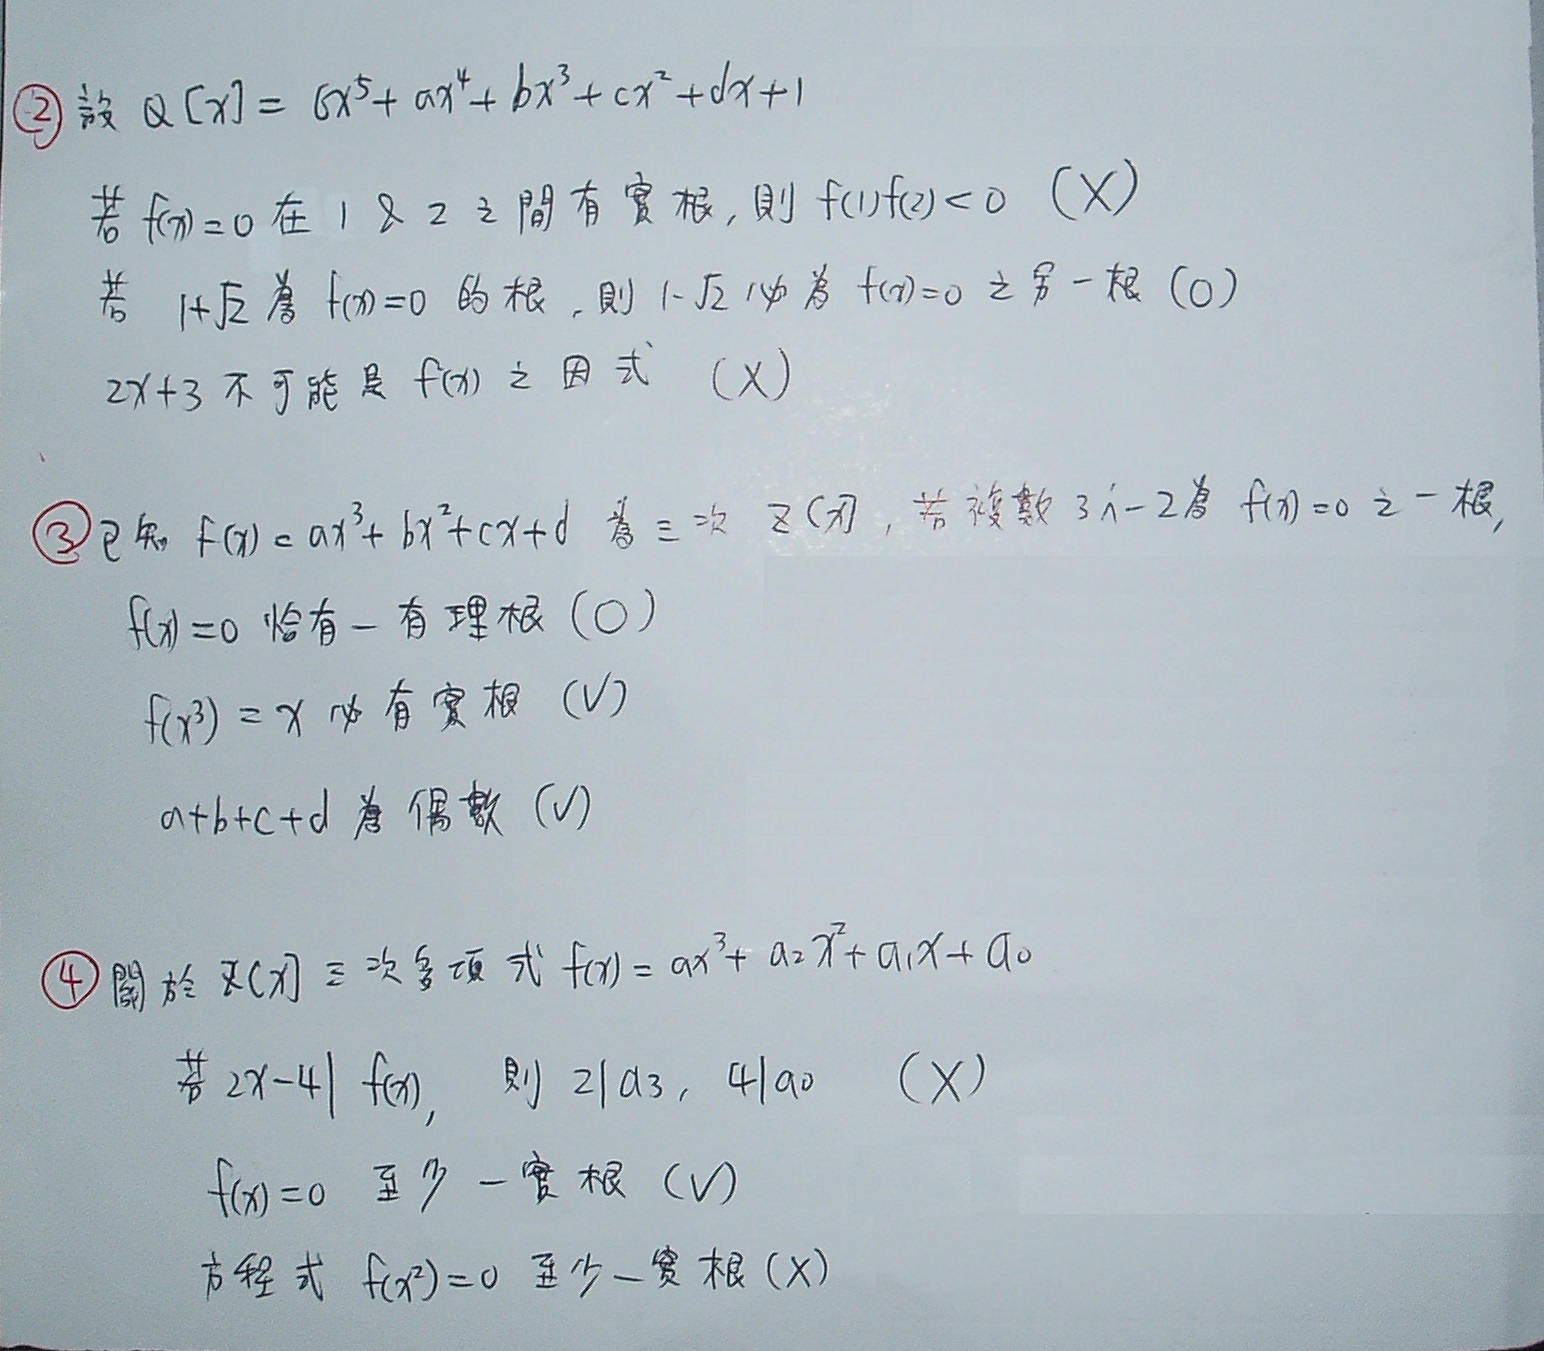 ② 設 Q[x] = 6x⁵+ ax⁴+ bx³+cx²+dx+1
若 f(x)=0 在 1 & 2 之間有實根, 則 f(1)f(2)<0 (X)
若 1+√2 為 f(x)=0 的根, 則 1-√2 必為 f(x)=0 之另一根 (O)
2x+3 不可能是 f(x) 之因式 (X)
③ 已知 f(x)=ax³+bx²+cx+d 為三次 Z[x], 若複數 3i-2為 f(x)=0 之一根,
f(x)=0 恰有一有理根 (O)
f(x³)=x 必有實根 (V)
a+b+c+d 為偶數 (V)
④ 關於 Z[x] 三次多項式 f(x)= ax³+ a₂x²+a₁x+a₀
若 2x-4| f(x), 則 2|a₃, 4|a₀ (X)
f(x)=0 至少一實根 (V)
方程式 f(x²)=0 至少一實根 (X)